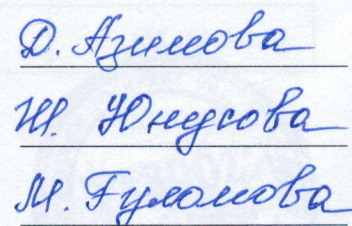 Д. Азимова
Ж. Юнусова
М. Гуломова